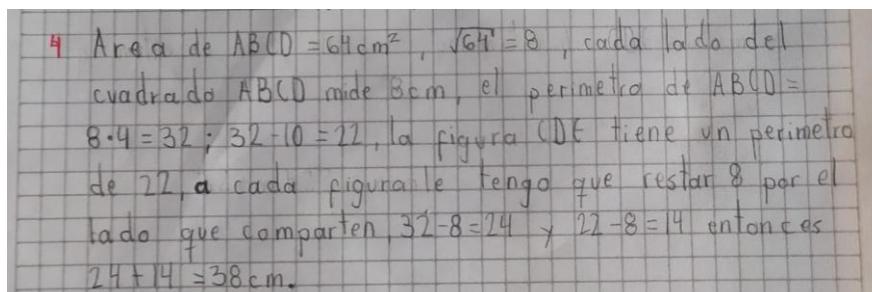 4 Area de ABCD = 64cm², √64 = 8, cada lado del
cuadrado ABCD mide 8cm, el perimetro de ABCD =
8·4 = 32; 32-10 = 22, la figura CDE tiene un perimetro
de 22, a cada figura le tengo que restar 8 por el
lado que comparten, 32-8=24 y 22-8=14 entonces
24+14 = 38cm.